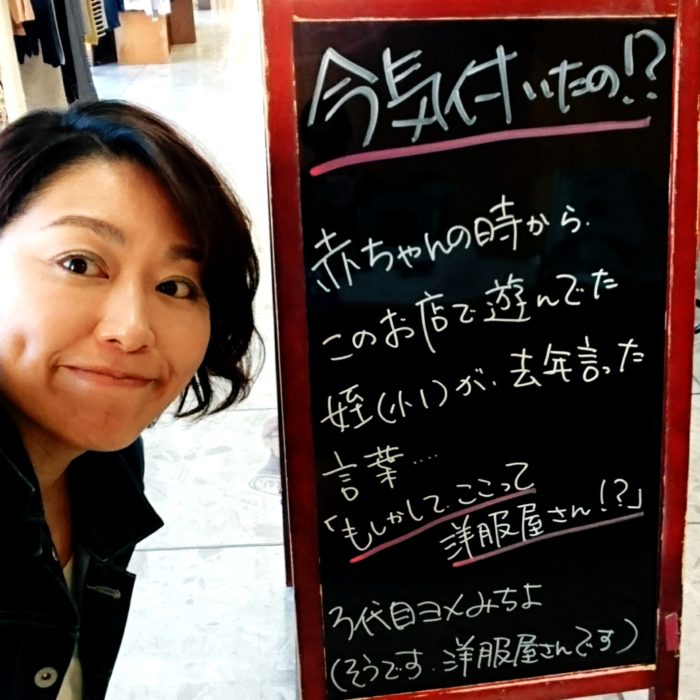 今気付いたの!?
赤ちゃんの時から.
このお店で遊んでた
姪(小1)が、去年言った
言葉‥‥
「もしかして、ここって
洋服屋さん!?」
3代目ヨメみちよ
(そうです.洋服屋さんです)